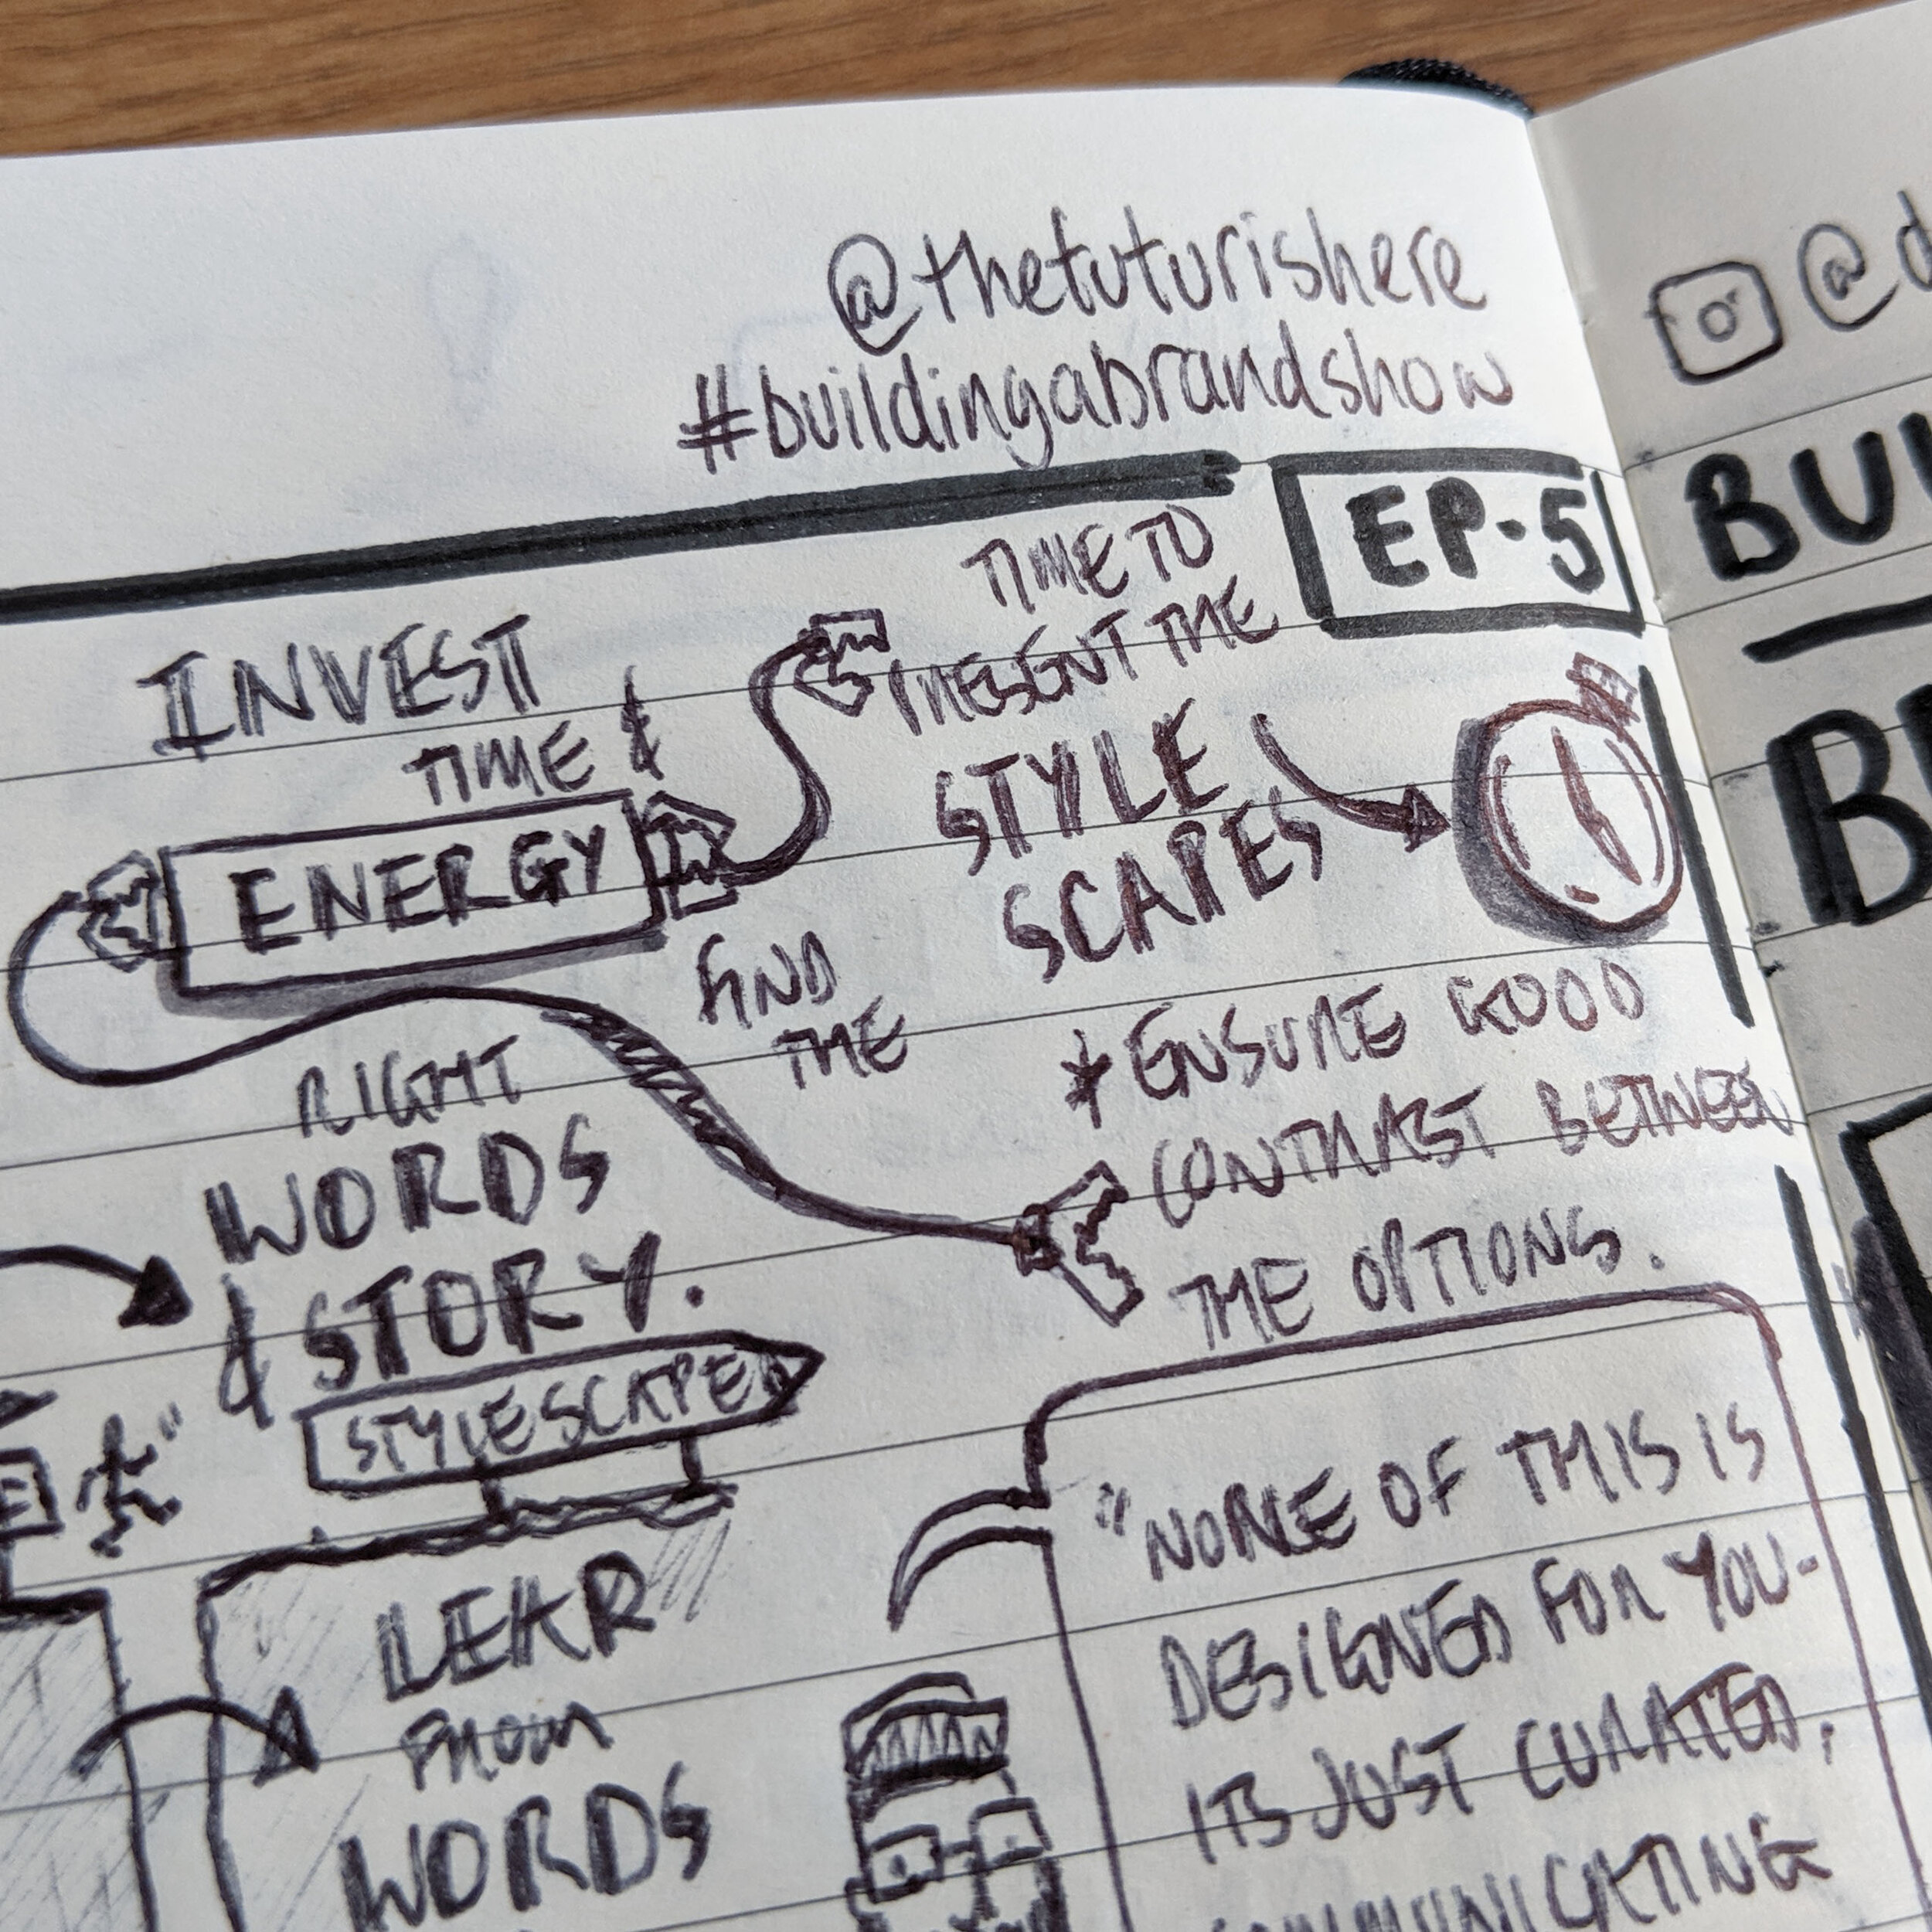 @thefuturishere
#buildingabrandshow
EP-5
INVEST
TIME &
ENERGY
FIND
THE
RIGHT
WORDS
& STORY.
TIME TO
PRESENT THE
STYLE
SCAPES
* ENSURE GOOD
CONTRAST BETWEEN
THE OPTIONS.
STYLESCAPE
LEAR
FROM
WORDS
"NONE OF THIS IS
DESIGNED FOR YOU-
ITS JUST CURATED,
COMMUNICATING
@d
BU